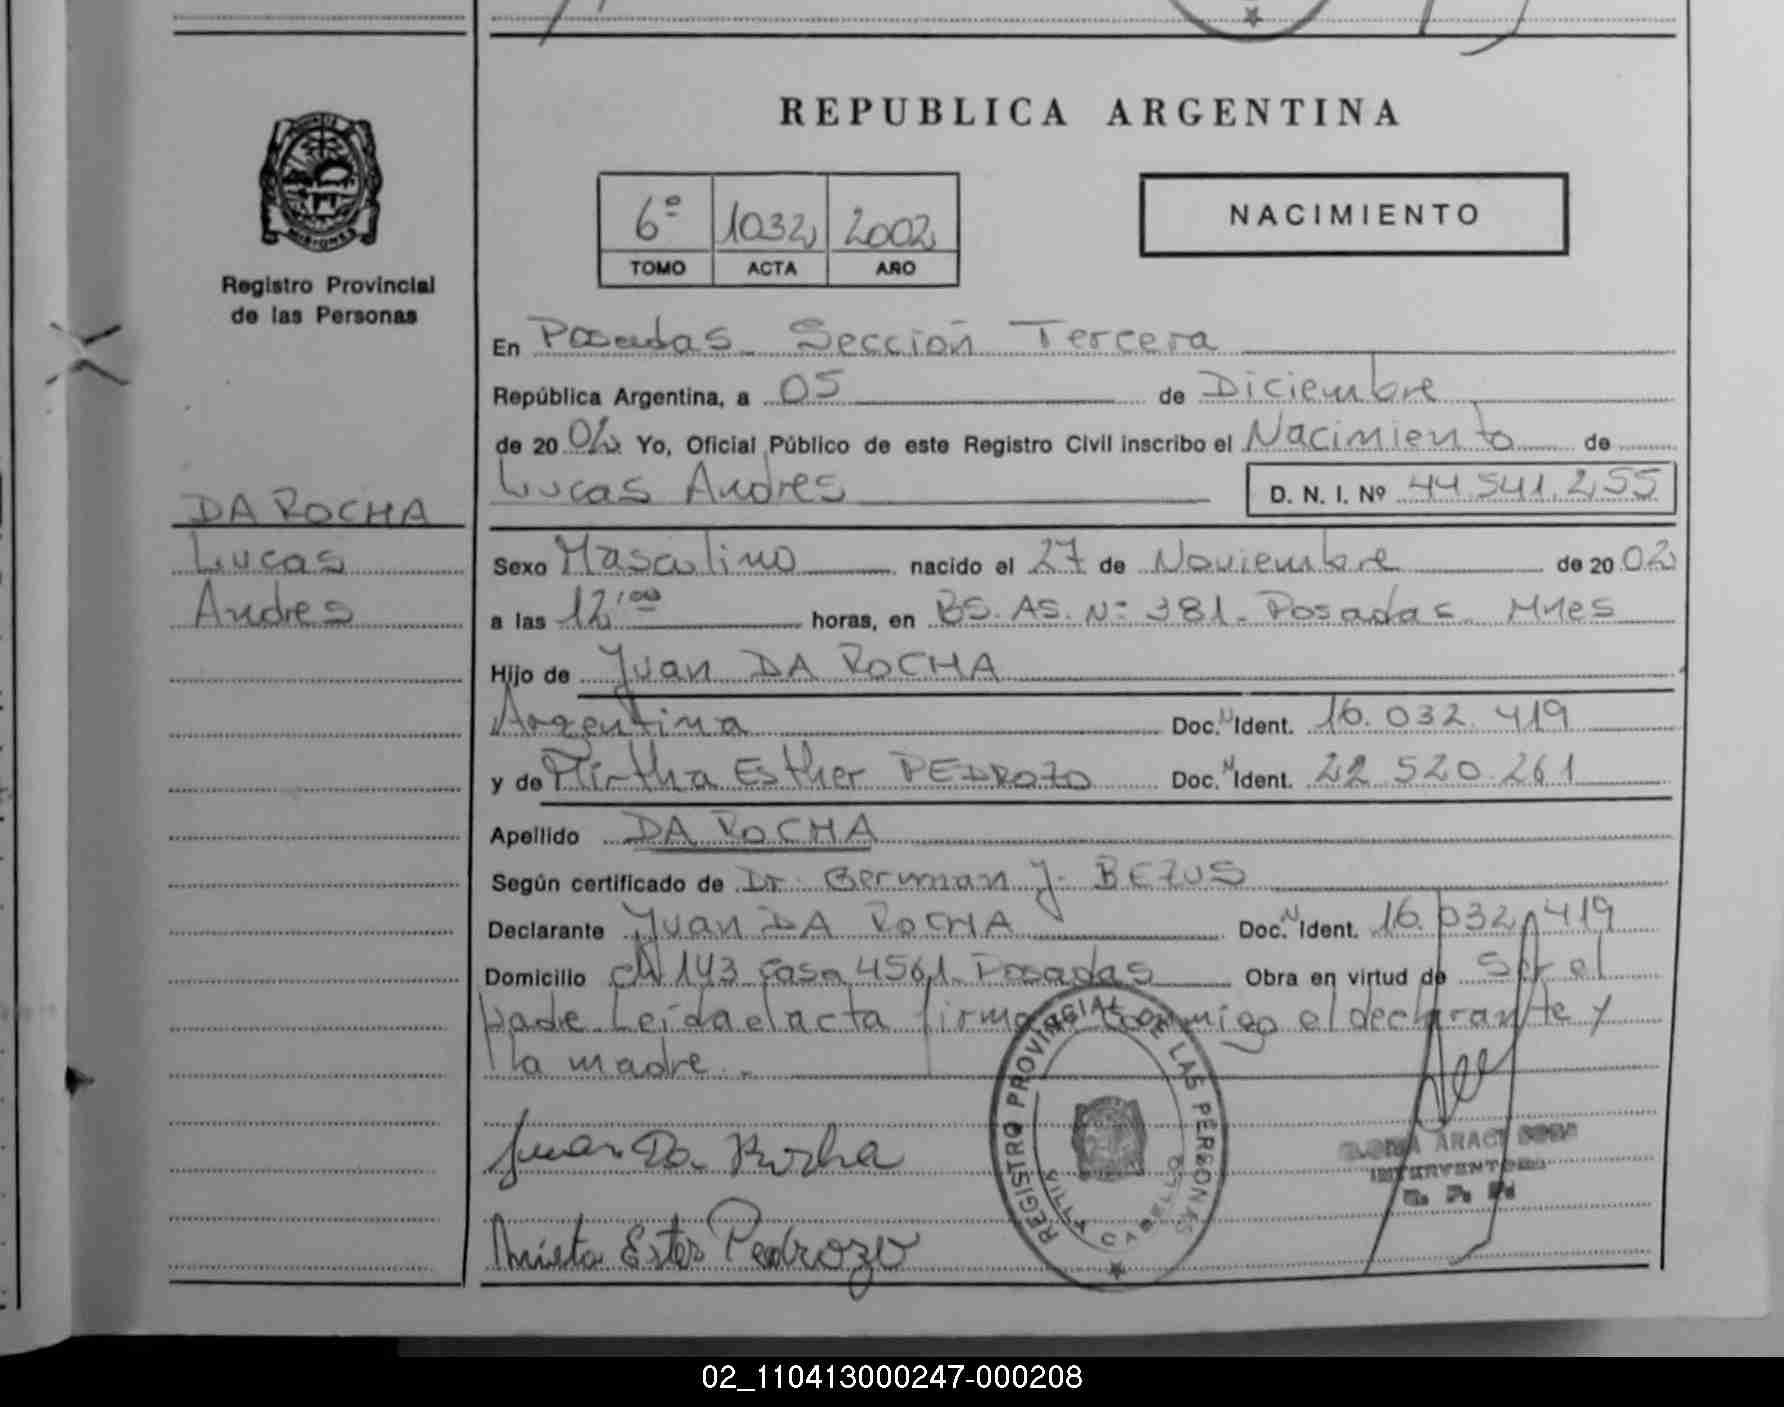 REPUBLICA ARGENTINA
MISIONES
Registro Provincial
de las Personas
6º 1032 2002
TOMO ACTA AÑO
NACIMIENTO
En Posadas Sección Tercera
República Argentina, a 05 de Diciembre
de 20 02 Yo, Oficial Público de este Registro Civil inscribo el Nacimiento de
Lucas Andres D. N. I. Nº 44.541.255
DA ROCHA
Lucas
Andres
Sexo Masculino nacido el 27 de Noviembre de 20 02
a las 12'00 horas, en BS. AS. Nº 381. Posadas Mnes
Hijo de Juan DA ROCHA
Argentina Doc. N Ident. 16.032.419
y de Mirtha Esther PEDROZO Doc. N Ident. 22.520.261
Apellido DA ROCHA
Según certificado de Dr. German J. BEZUS
Declarante Juan DA ROCHA Doc. N Ident. 16.032.419
Domicilio ch 143 casa 4561. Posadas Obra en virtud de Ser el
padre Leída el acta firman conmigo el declarante y
la madre.
Juan Da Rocha
Mirta Ester Pedrozo
REGISTRO PROVINCIAL DE LAS PERSONAS
VILLA CABELLO
ARACI SOSA
INTERVENTORA
02_110413000247-000208